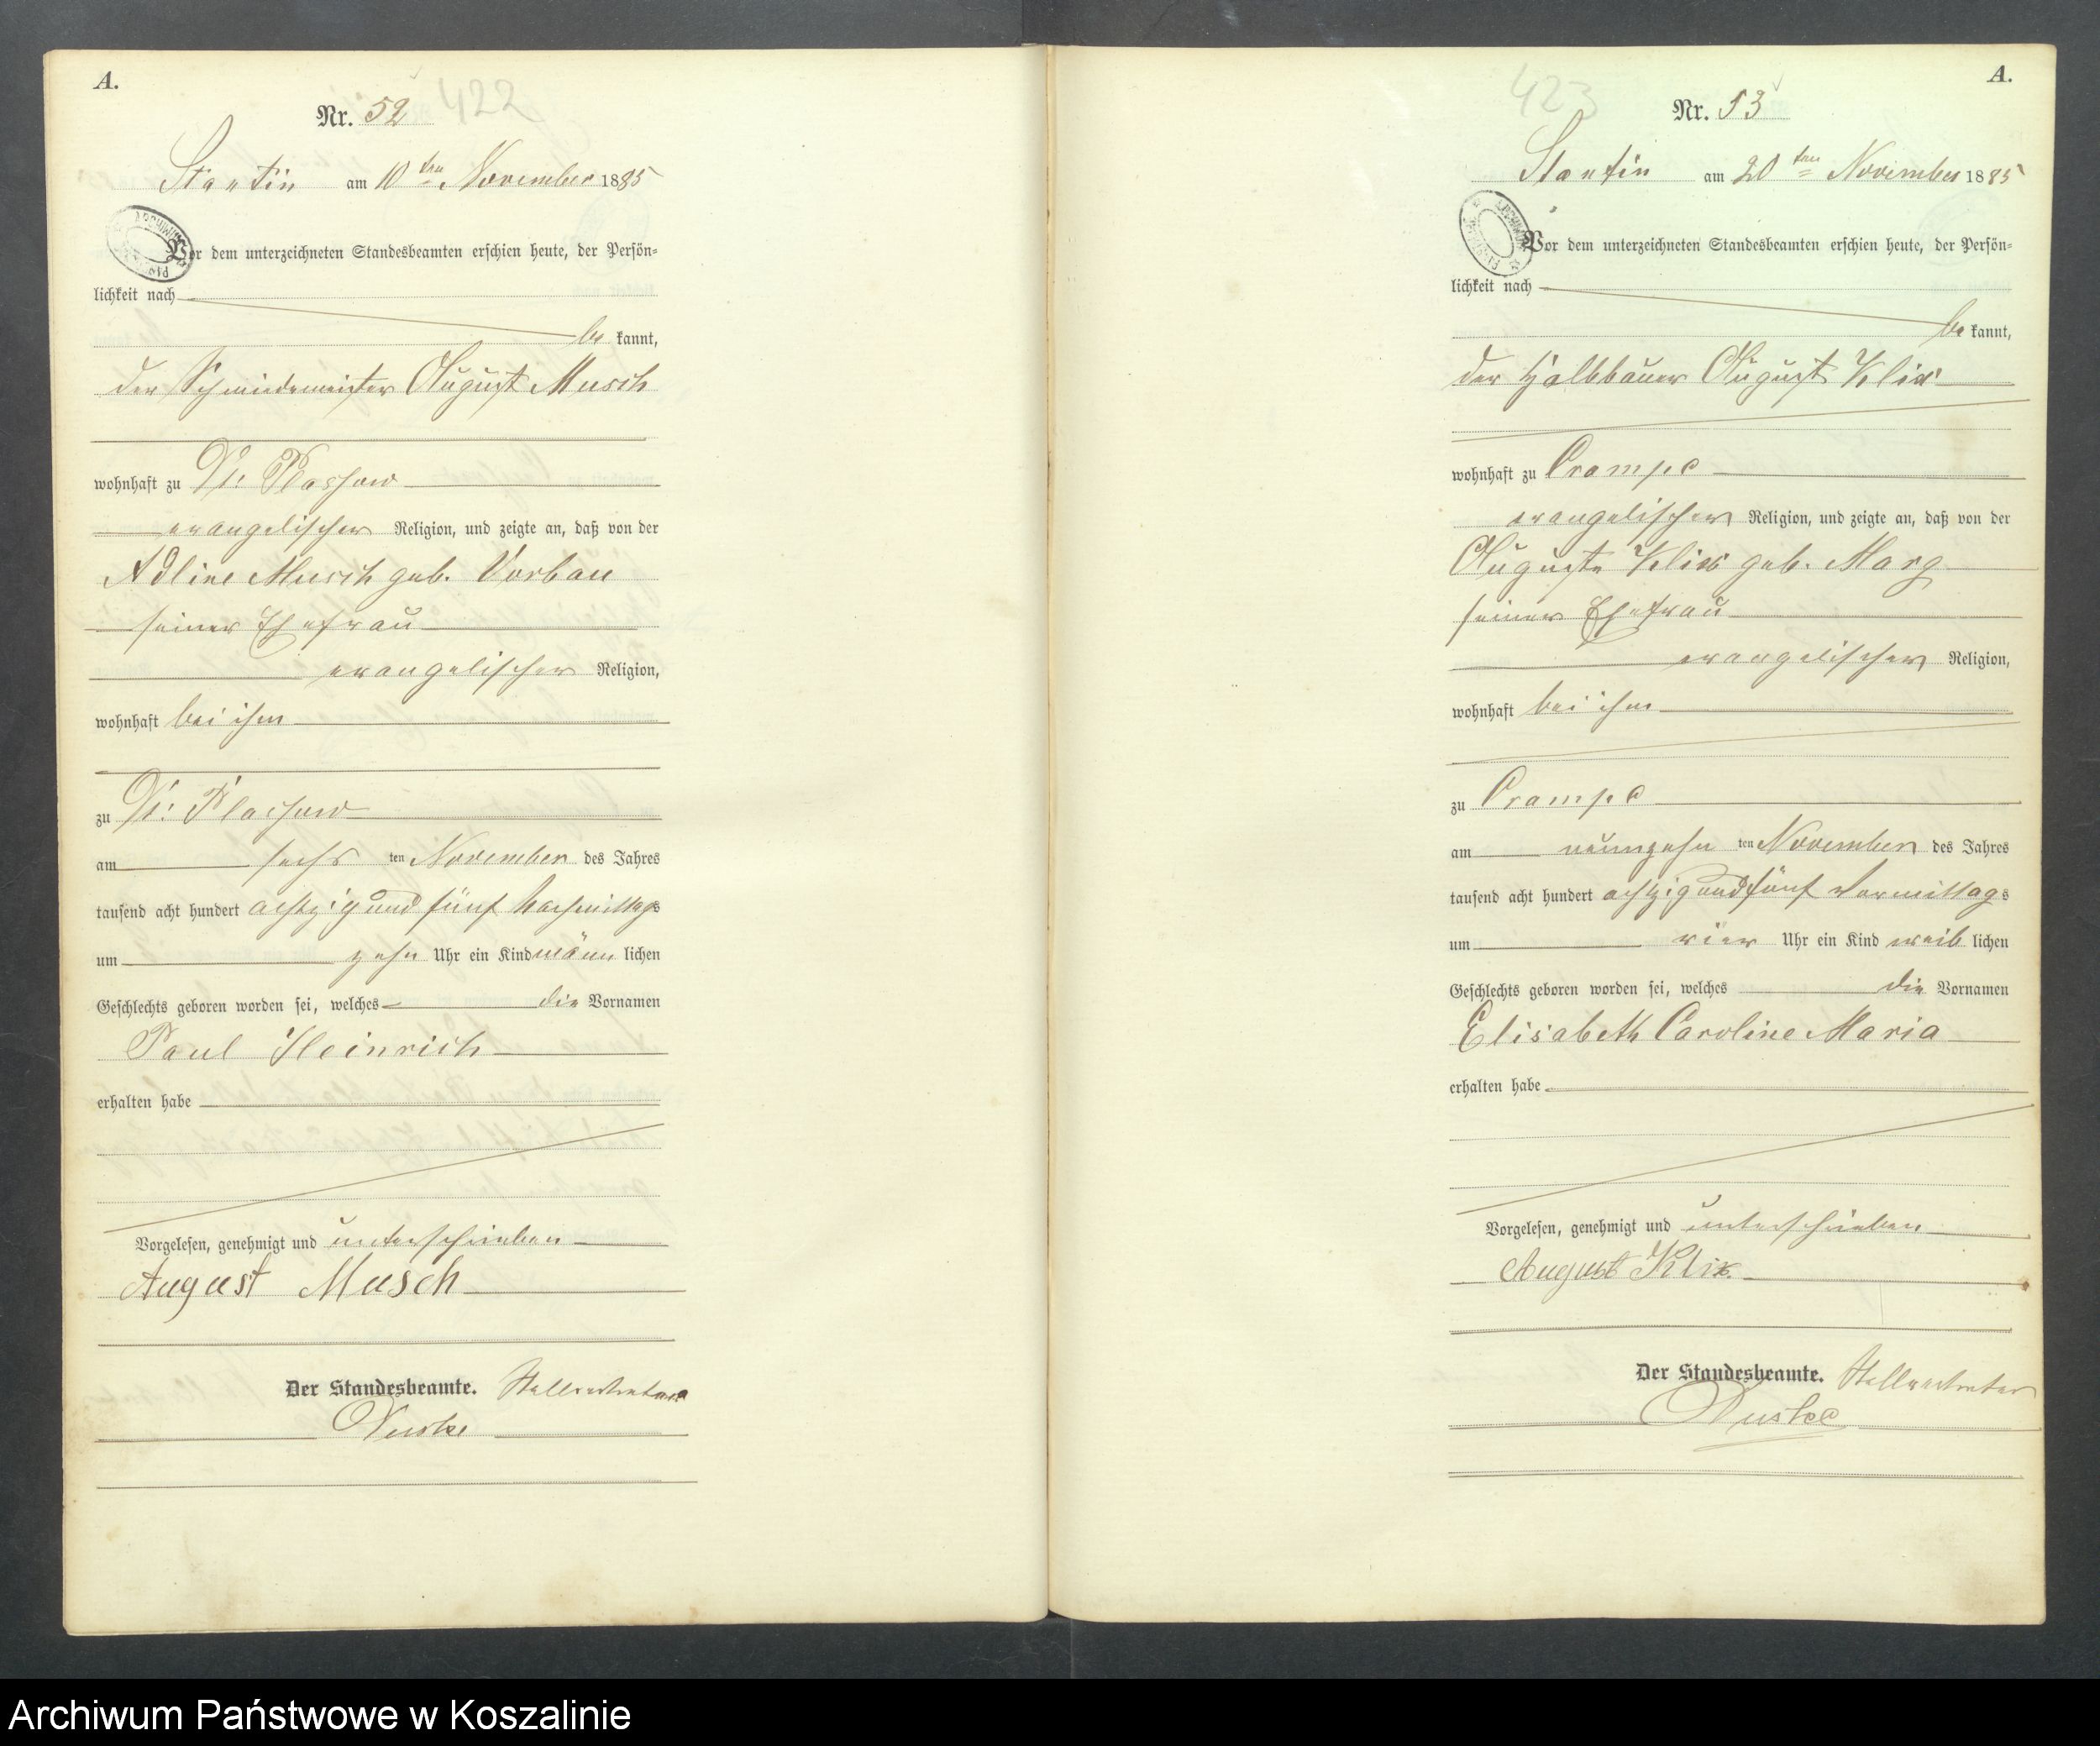 A.
Nr. 52 422
Stantin am 10ten November 1885
Vor dem unterzeichneten Standesbeamten erschien heute, der Persön-
lichkeit nach
be kannt,
der Schmiedemeister August Musch
wohnhaft zu Gr: Plassow
evangelischer Religion, und zeigte an, daß von der
Adline Musch geb. Vorbau
seiner Ehefrau
evangelischer Religion,
wohnhaft bei ihm
zu Gr: Plassow
am sechs ten November des Jahres
tausend acht hundert achtzig und fünf Nachmittags
um zehn Uhr ein Kind männ lichen
Geschlechts geboren worden sei, welches die Vornamen
Paul Heinrich
erhalten habe
Vorgelesen, genehmigt und unterschrieben
August Musch
Der Standesbeamte. Stellvertreter
A.
423
Nr. 53
Stantin am 20ten November 1885
Vor dem unterzeichneten Standesbeamten erschien heute, der Persön-
lichkeit nach
be kannt,
der Halbbauer August Klix
wohnhaft zu Crampe
evangelischer Religion, und zeigte an, daß von der
Auguste Klix geb. Marg
seiner Ehefrau
evangelischer Religion,
wohnhaft bei ihm
zu Crampe
am neunzehn ten November des Jahres
tausend acht hundert achtzig und fünf Vormittags
um vier Uhr ein Kind weib lichen
Geschlechts geboren worden sei, welches die Vornamen
Elisabeth Caroline Maria
erhalten habe
Vorgelesen, genehmigt und unterschrieben
August Klix
Der Standesbeamte. Stellvertreter
Archiwum Państwowe w Koszalinie